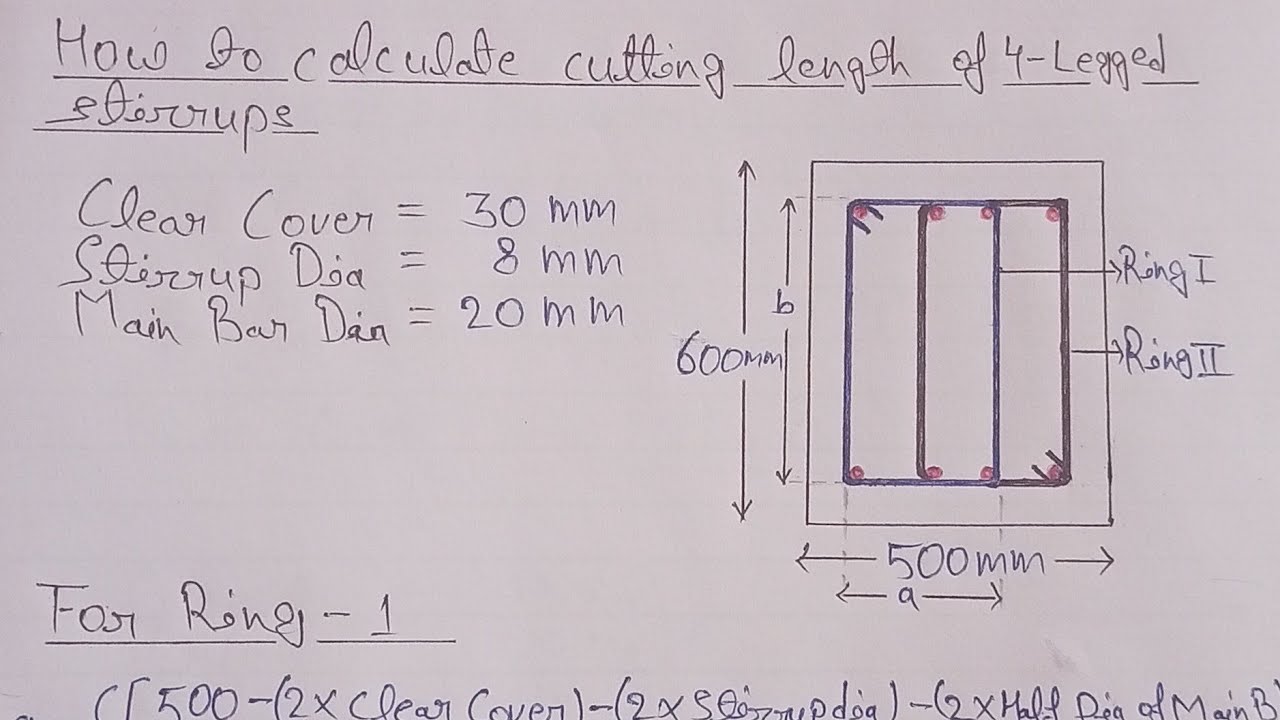 How to calculate cutting length of 4-Legged
stirrups
Clear Cover = 30 mm
Stirrup Dia = 8 mm
Main Bar Dia = 20 mm
Ring I
b
600mm
Ring II
500mm
a
For Ring - 1
([500-(2×Clear Cover)-(2×Stirrup dia)-(2×Half Dia of Main B